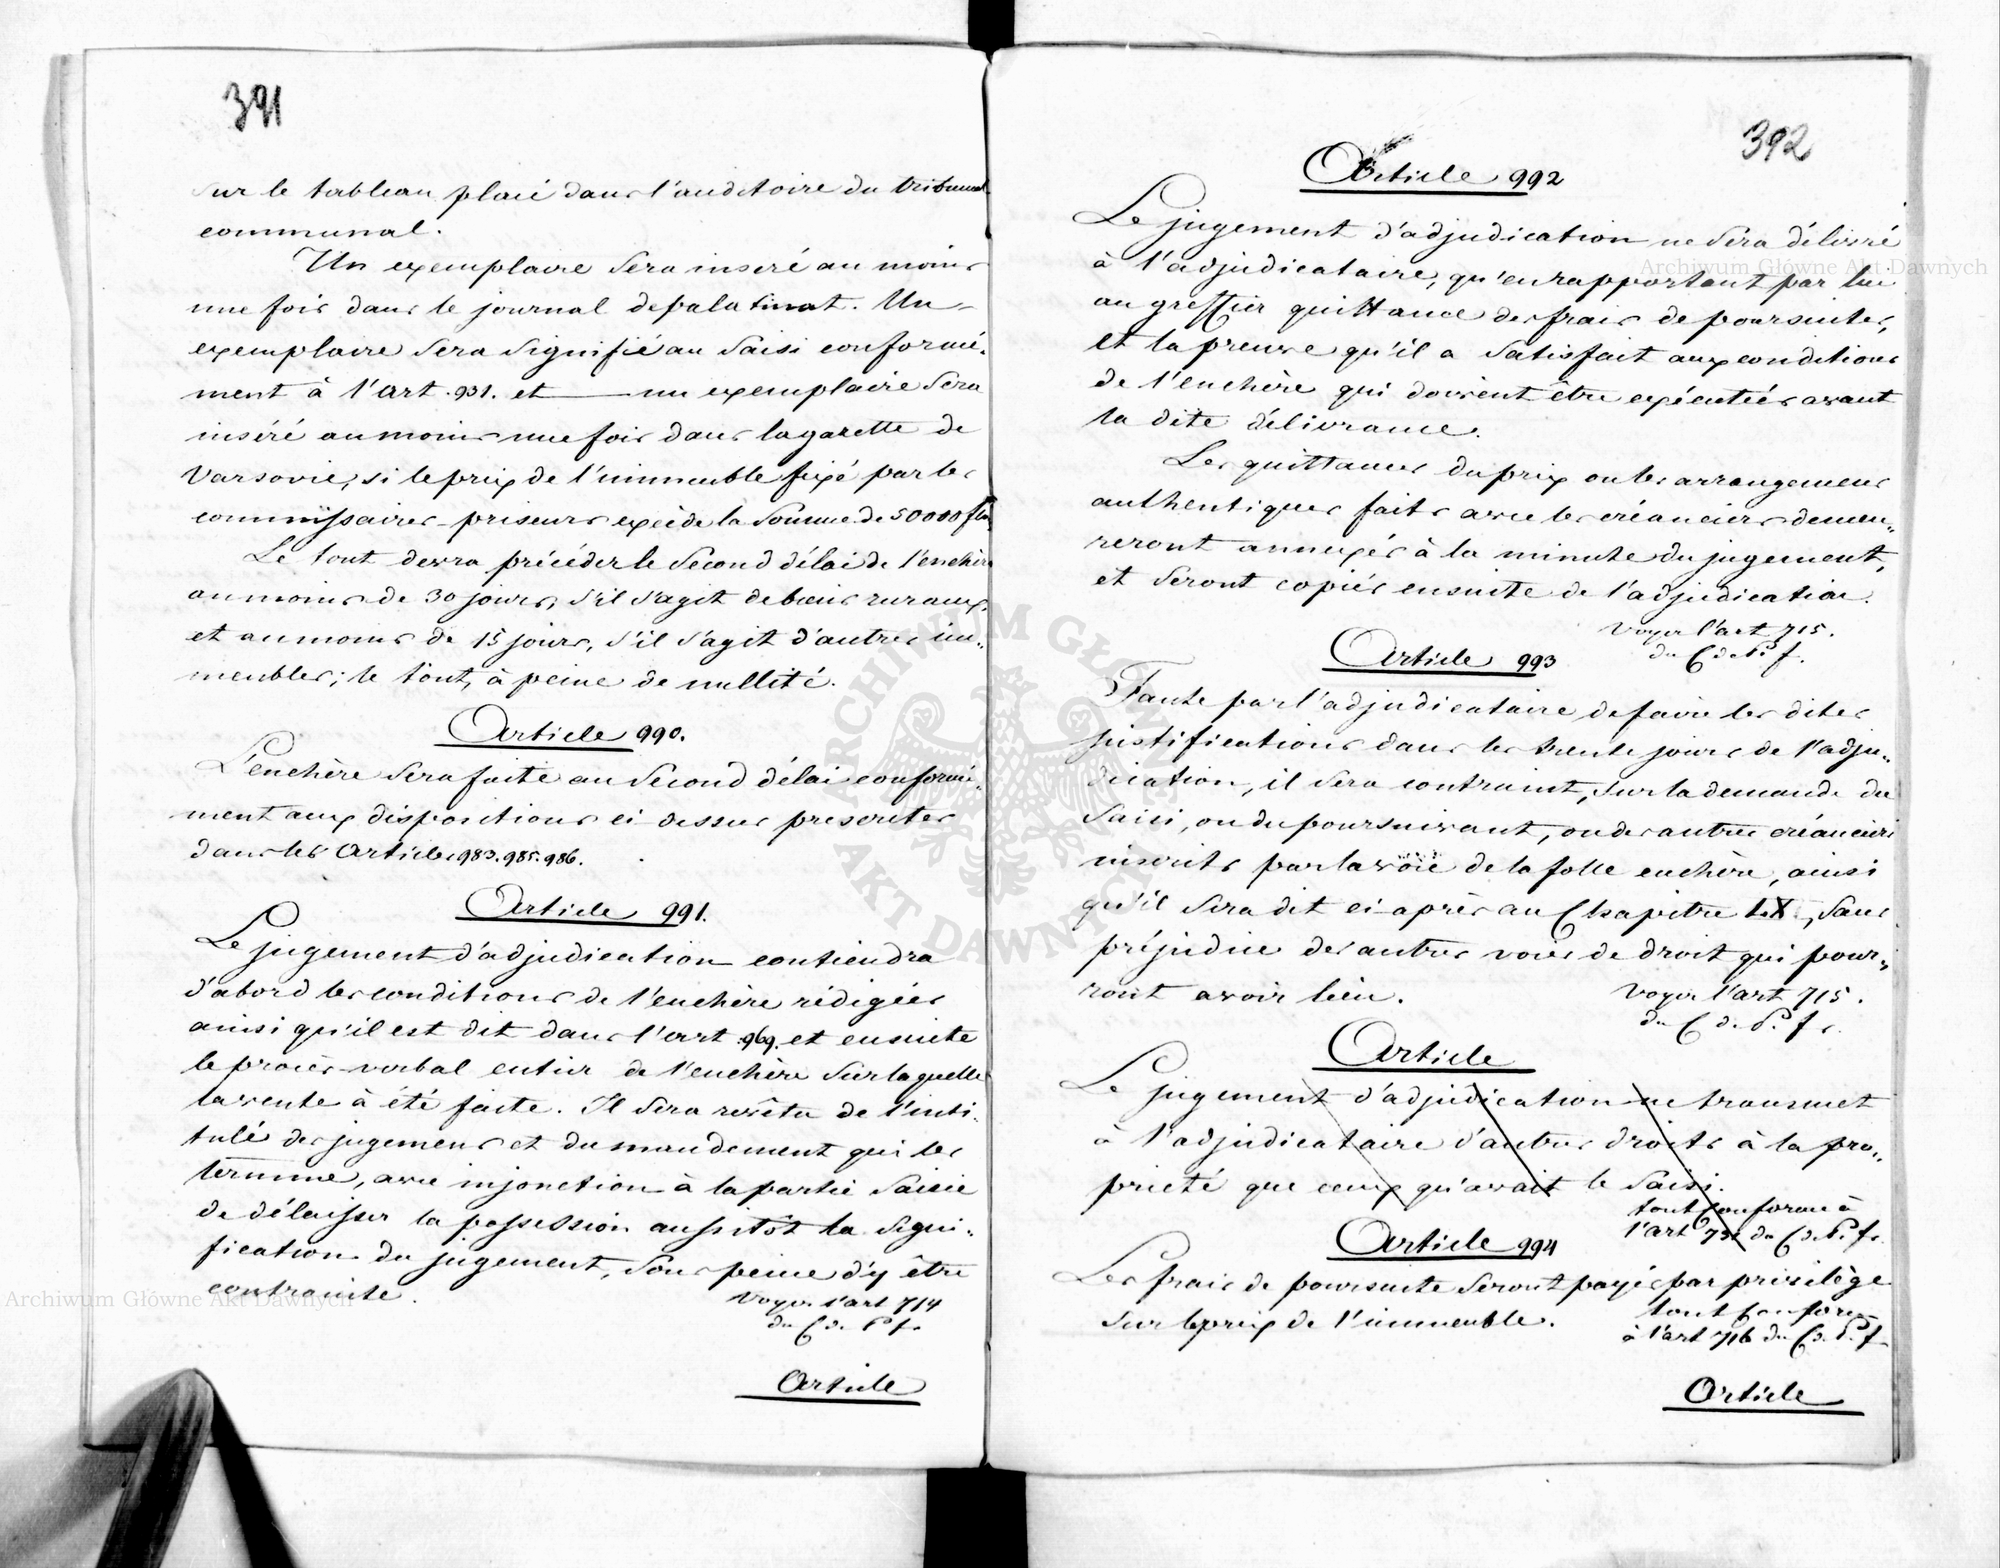 391
sur le tableau placé dans l'auditoire du tribunal
communal.
Un exemplaire sera inséré au moins
une fois dans le journal de palatinat. Un
exemplaire sera signifié au saisi conformé-
ment à l'art. 931. et un exemplaire sera
inséré au moins une fois dans la gazette de
Varsovie, si le prix de l'immeuble fixé par les
commissaires-priseurs excède la somme de 50000 fl
Le tout devra précéder le second délai de l'enchère
au moins de 30 jours, s'il s'agit de biens ruraux,
et au moins de 15 jours, s'il s'agit d'autres im-
meubles; le tout, à peine de nullité.
Article 990.
L'enchère sera faite au second délai conformé-
ment aux dispositions ci-dessus prescrites
dans les Articles 983. 985. 986.
Article 991.
Le jugement d'adjudication contiendra
d'abord les conditions de l'enchère rédigées
ainsi qu'il est dit dans l'art 969. et ensuite
le procès-verbal entier de l'enchère sur laquelle
la vente à été faite. Il sera revêtu de l'inti-
tulé des jugemens et du mandement qui les
termine, avec injonction à la partie saisie
de délaisser la possession aussitôt la signi-
fication du jugement, sous peine d'y être
contrainte.
Voyez l'art 714
du C d. P. f.
Article
392
Article 992
Le jugement d'adjudication ne sera délivré
à l'adjudicataire, qu'en rapportant par lui
au greffier quittance des frais de poursuites,
et la preuve qu'il a satisfait aux conditions
de l'enchère qui doivent être exécutées avant
la dite délivrance.
Les quittances du prix ou les arrangemens
authentiques faits avec les créanciers demeu-
reront annexés à la minute du jugement,
et seront copiés ensuite de l'adjudication.
Voyez l'art 715.
du C d. P. f.
Article 993
Faute par l'adjudicataire de faire les dites
justifications dans les trente jours de l'adju-
dication, il sera contraint, sur la demande du
saisi, ou du poursuivant, ou des autres créanciers
inscrits par la voie de la folle enchère, ainsi
qu'il sera dit ci-après au Chapitre IX, sans
préjudice des autres voies de droit qui pour-
ront avoir lieu.
Voyez l'art 715.
du C d. P. f.
Article
Le jugement d'adjudication ne transmet
à l'adjudicataire d'autres droits à la pro-
prieté que ceux qu'avait le saisi.
tout conforme à
l'art 731 du C d. P. f.
Article 994
Les frais de poursuite seront payés par privilège
sur le prix de l'immeuble.
tout conforme
à l'art 716 du C d. P. f
Article
Archiwum Główne Akt Dawnych
Archiwum Główne Akt Dawnych
ARCHIWUM GŁÓWNE
AKT DAWNYCH